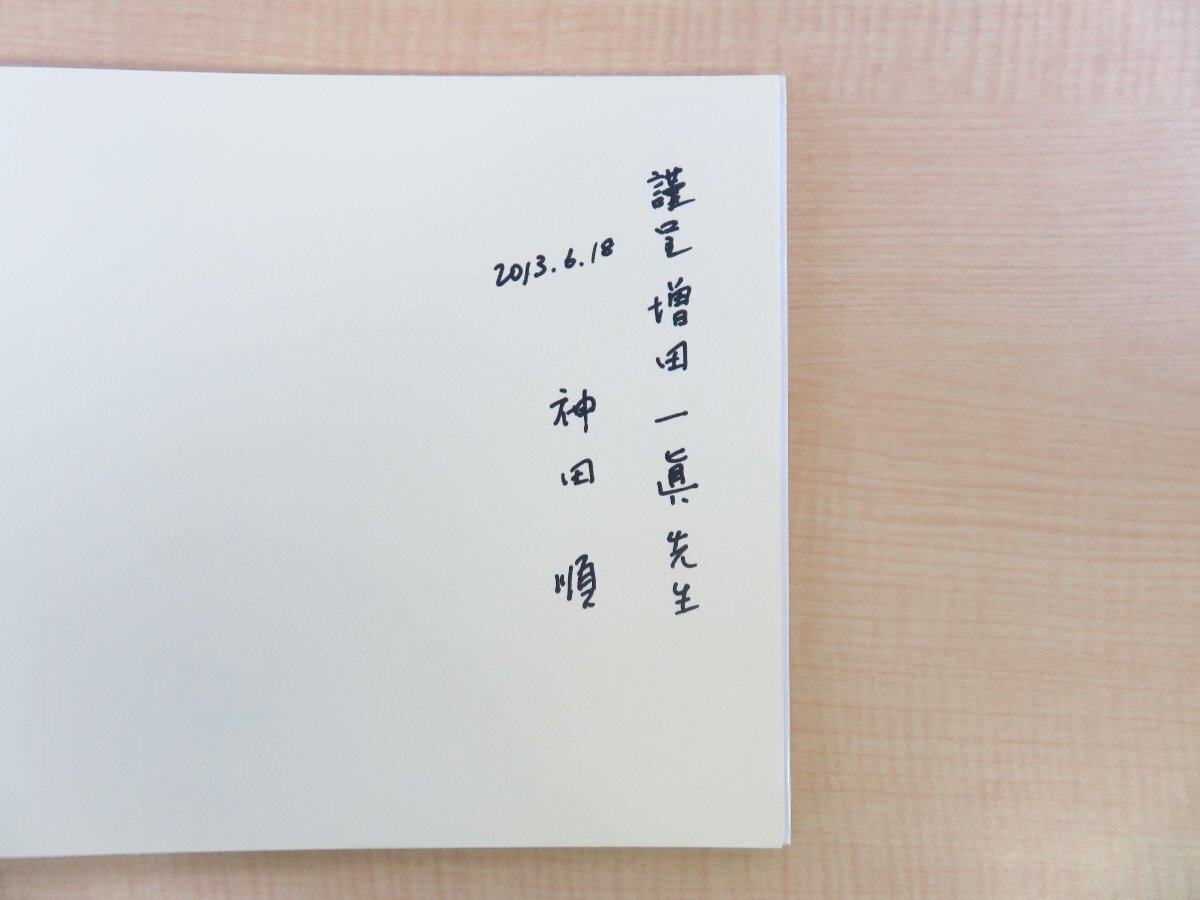 謹呈 増田一眞先生
2013.6.18
神田 順